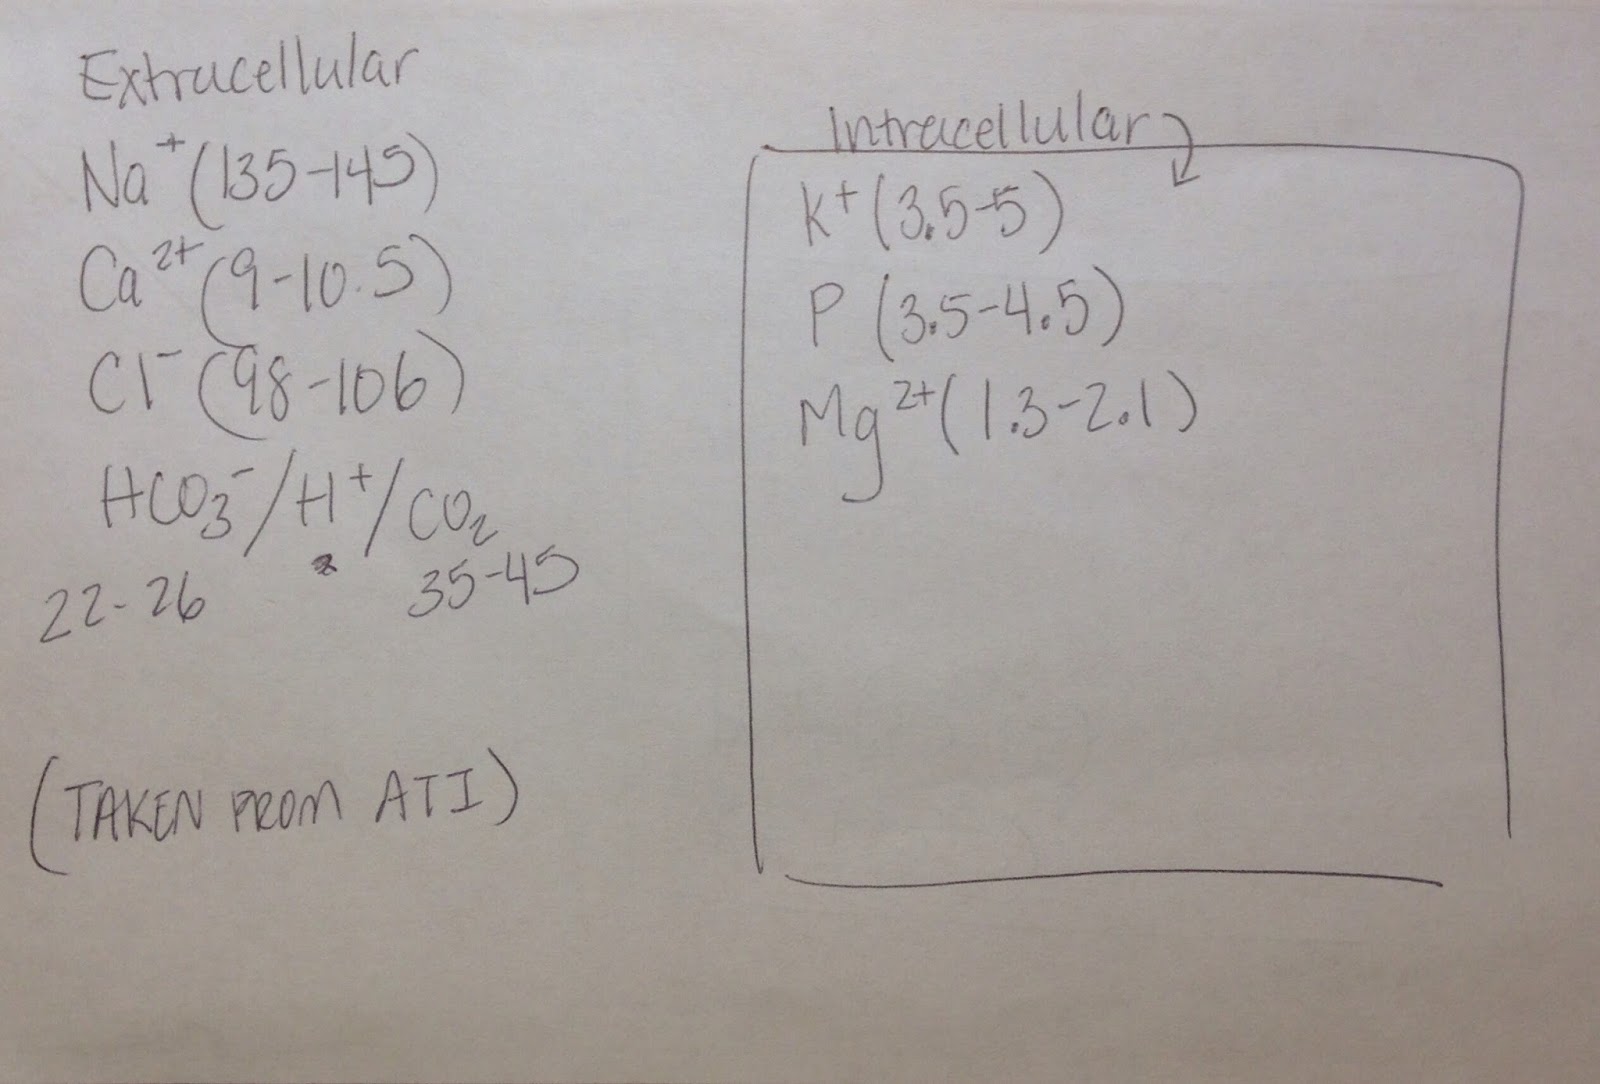 Extracellular
Na⁺ (135-145)
Ca²⁺ (9-10.5)
Cl⁻ (98-106)
HCO₃⁻/H⁺/CO₂
22-26 35-45
(TAKEN FROM ATI)
Intracellular
K⁺ (3.5-5)
P (3.5-4.5)
Mg²⁺ (1.3-2.1)